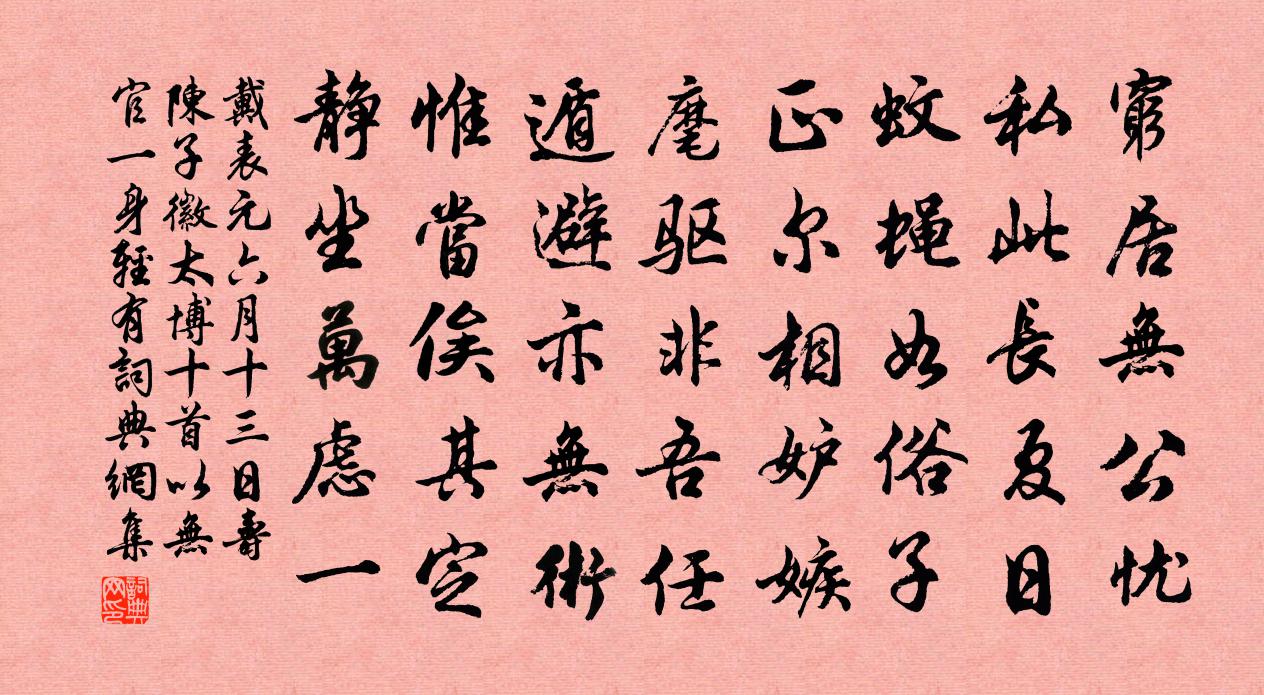 窮居無公忧
私此長夏日
蚊蝇如俗子
正尔相妒嫉
麾驱非吾任
遁避亦無術
惟當俟其定
静坐萬虑一
戴表元六月十三日壽
陳子徽太博十首以無
官一身輕有詞典網集
詞典